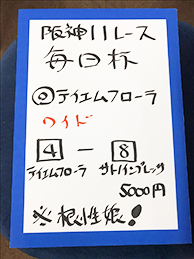 阪神11レース
毎日杯
◎テイエムフローラ
ワイド
4 － 8
テイエムフローラ サトノインプレッサ
5000円
※根性娘!